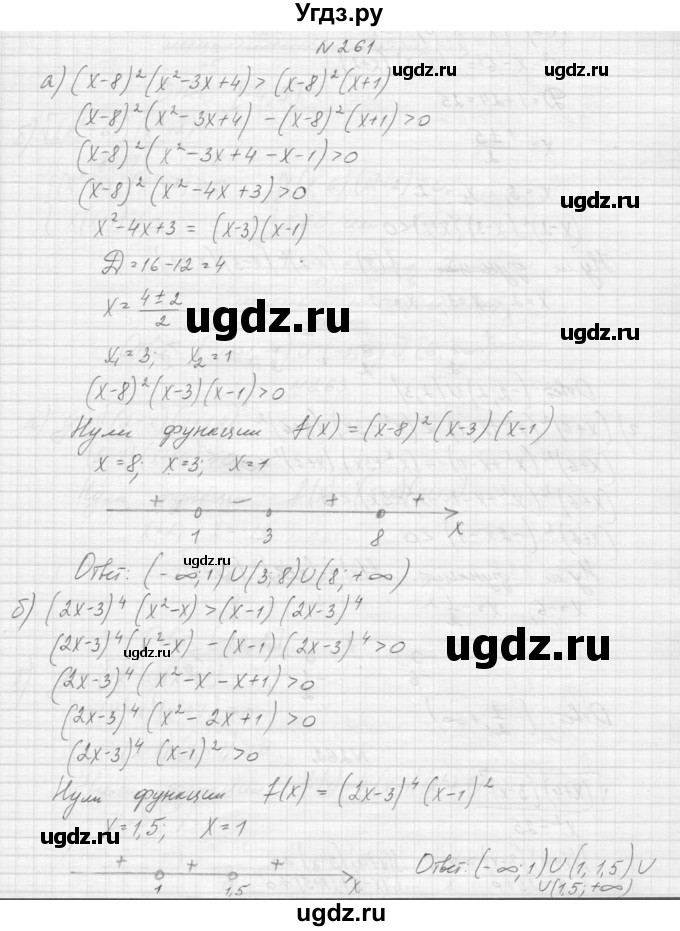 Угдз.ру
N 261
а) (x-8)²(x²-3x+4) > (x-8)²(x+1)
ugdz.ru ugdz.ru
(x-8)²(x²-3x+4) - (x-8)²(x+1) > 0
(x-8)²(x²-3x+4-x-1) > 0
(x-8)²(x²-4x+3) > 0
ugdz.ru
x²-4x+3 = (x-3)(x-1)
Д = 16-12 = 4
x = (4±2)/2
ugdz.ru ugdz.ru
x₁=3; x₂=1
(x-8)²(x-3)(x-1) > 0
Нули функции f(x) = (x-8)²(x-3)(x-1)
x=8; x=3; x=1
+ - + +
1 3 8 x
ugdz.ru
Ответ: (-∞;1)∪(3;8)∪(8;+∞)
б) (2x-3)⁴(x²-x) > (x-1)(2x-3)⁴
(2x-3)⁴(x²-x) - (x-1)(2x-3)⁴ > 0
ugdz.ru ugdz.ru
(2x-3)⁴(x²-x-x+1) > 0
(2x-3)⁴(x²-2x+1) > 0
(2x-3)⁴(x-1)² > 0
Нули функции f(x) = (2x-3)⁴(x-1)²
x=1,5; x=1
ugdz.ru ugdz.ru
+ + +
1 1,5 x
Ответ: (-∞;1)∪(1;1,5)∪
∪(1,5;+∞)
ugdz.ru